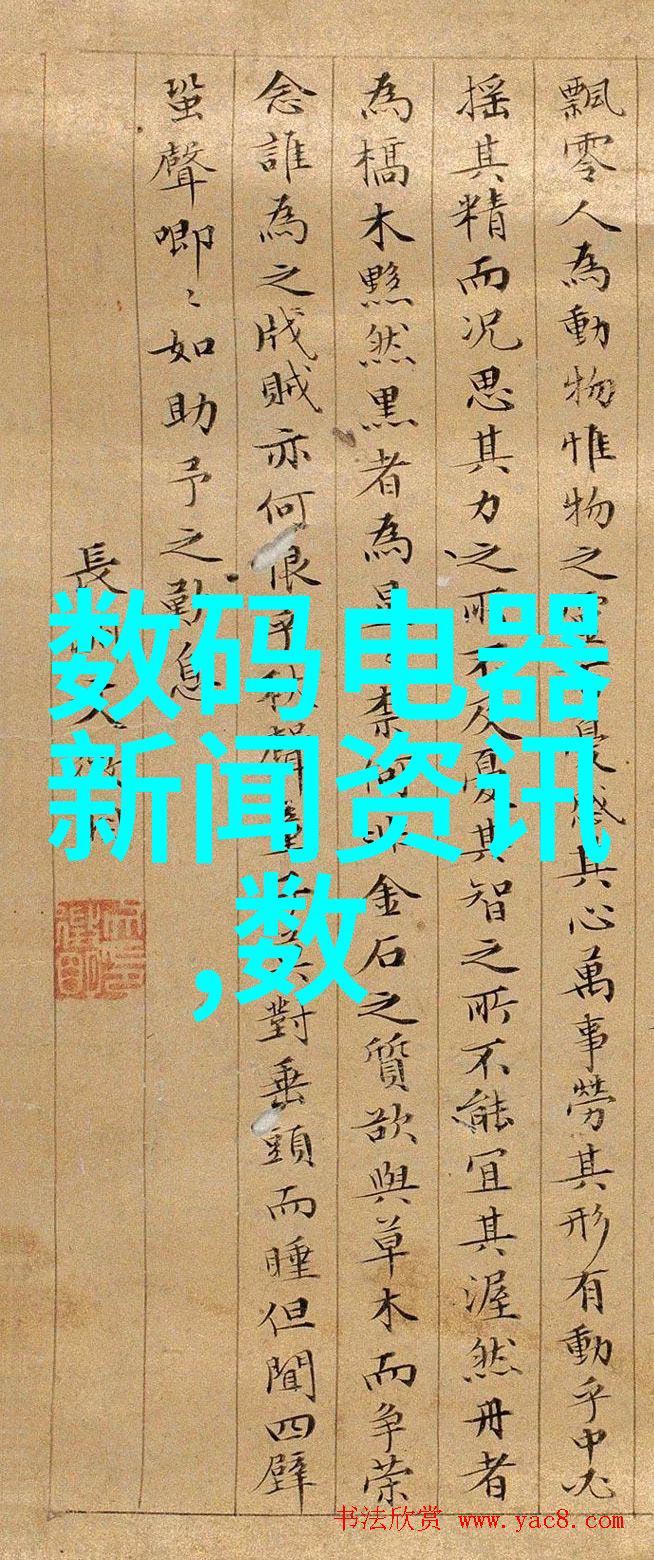 飄零人為動物惟物之憂感其心萬事勞其形有動乎中必
搖其精而況思其力之所不及憂其智之所不能宜其渥然丹者
為橋木黟然黑者為星奈何非金石之質欲與草木而争榮
念誰為之戕賊亦何恨乎秋聲童子莫對垂頭而睡但聞四壁
蛩聲唧〻如助予之歎息
長文徵
数码电器
新闻资讯
,数
书法欣赏 www.yac8.com